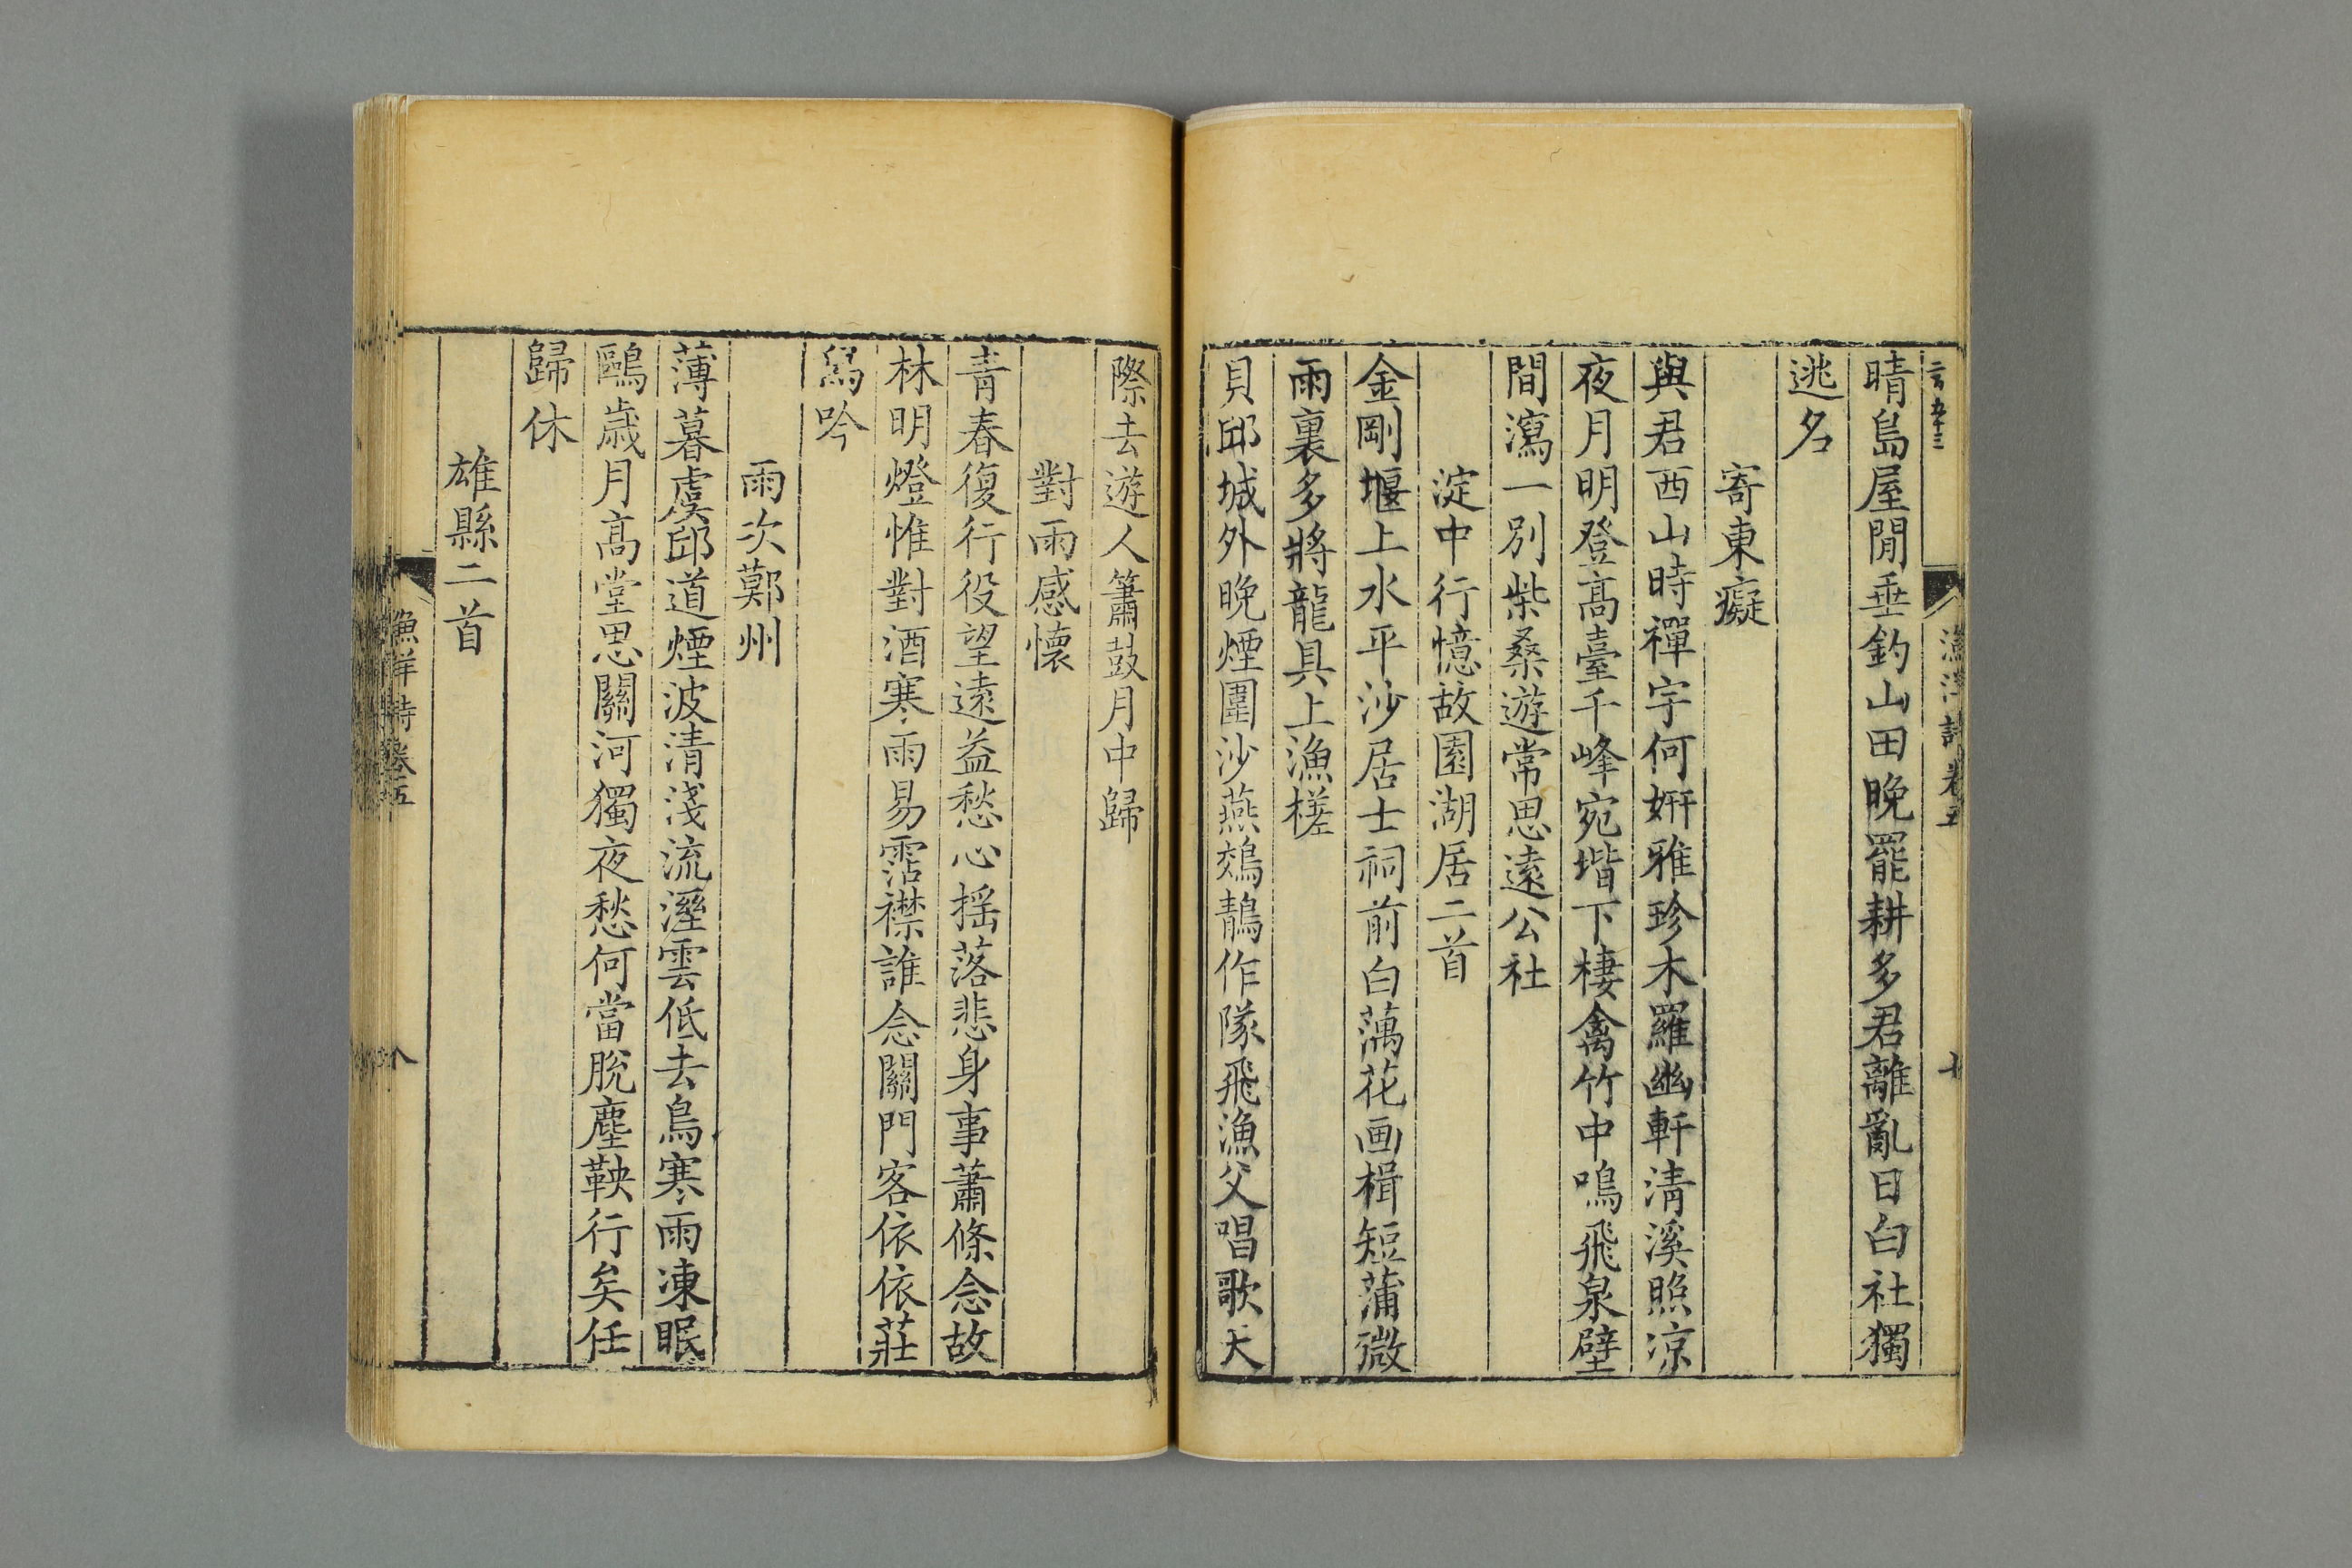 晴島屋閒垂釣山田晚罷耕多君離亂日白社獨
逃名
寄東癡
與君西山時禪宇何妍雅珍木羅幽軒清溪照凉
夜月明登高臺千峰宛堦下棲禽竹中鳴飛泉壁
間瀉一別柴桑遊常思遠公社
淀中行憶故園湖居二首
金剛堰上水平沙居士祠前白藕花画楫短蒲微
雨裏多將龍具上漁槎
貝邱城外晚煙圍沙燕鵁鶄作隊飛漁父唱歌天
際去遊人簫鼓月中歸
對雨感懷
青春復行役望遠益愁心揺落悲身事蕭條念故
林明燈惟對酒寒雨易霑襟誰念關門客依依莊
舄吟
雨次鄚州
薄暮虞邱道煙波清淺流溼雲低去鳥寒雨凍眠
鷗歲月高堂思關河獨夜愁何當脫塵鞅行矣任
歸休
雄縣二首
漁洋詩卷五